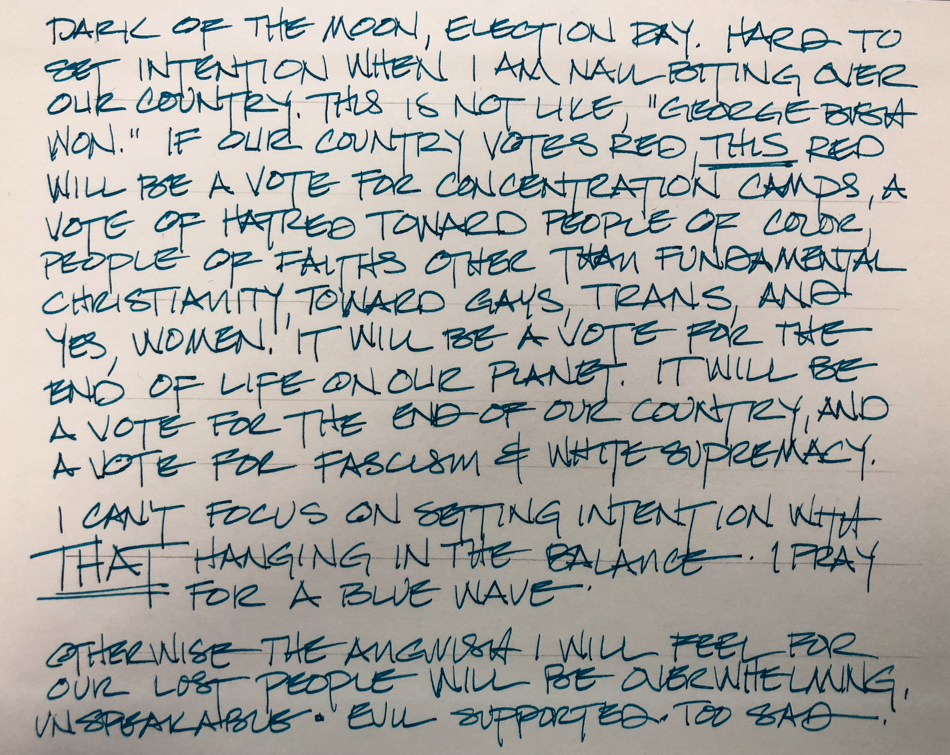 DARK OF THE MOON, ELECTION DAY. HARD TO
SET INTENTION WHEN I AM NAIL BITING OVER
OUR COUNTRY. THIS IS NOT LIKE, "GEORGE BUSH
WON." IF OUR COUNTRY VOTES RED, THIS RED
WILL BE A VOTE FOR CONCENTRATION CAMPS, A
VOTE OF HATRED TOWARD PEOPLE OF COLOR,
PEOPLE OF FAITHS OTHER THAN FUNDAMENTAL
CHRISTIANITY, TOWARD GAYS, TRANS, AND
YES, WOMEN. IT WILL BE A VOTE FOR THE
END OF LIFE ON OUR PLANET. IT WILL BE
A VOTE FOR THE END OF OUR COUNTRY, AND
A VOTE FOR FASCISM & WHITE SUPREMACY.
I CAN'T FOCUS ON SETTING INTENTION WITH
THAT HANGING IN THE BALANCE. I PRAY
FOR A BLUE WAVE.
OTHERWISE THE ANGUISH I WILL FEEL FOR
OUR LOST PEOPLE WILL BE OVERWHELMING,
UNSPEAKABLE. EVIL SUPPORTED. TOO SAD.